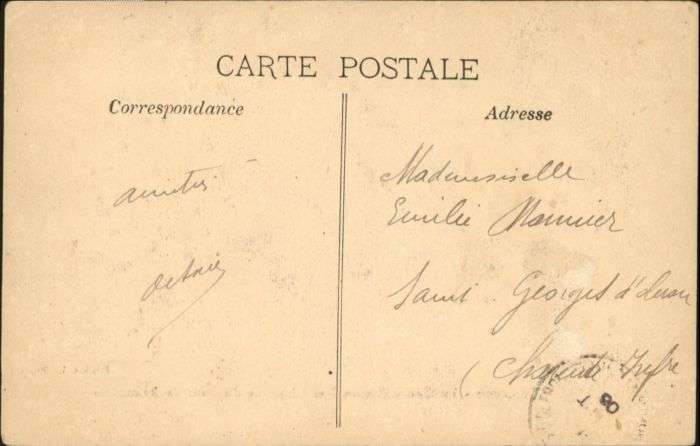 CARTE POSTALE
Correspondance
Adresse
Mademoiselle
Emilie Monnier
Saint Georges d'oleron
Charente Infre